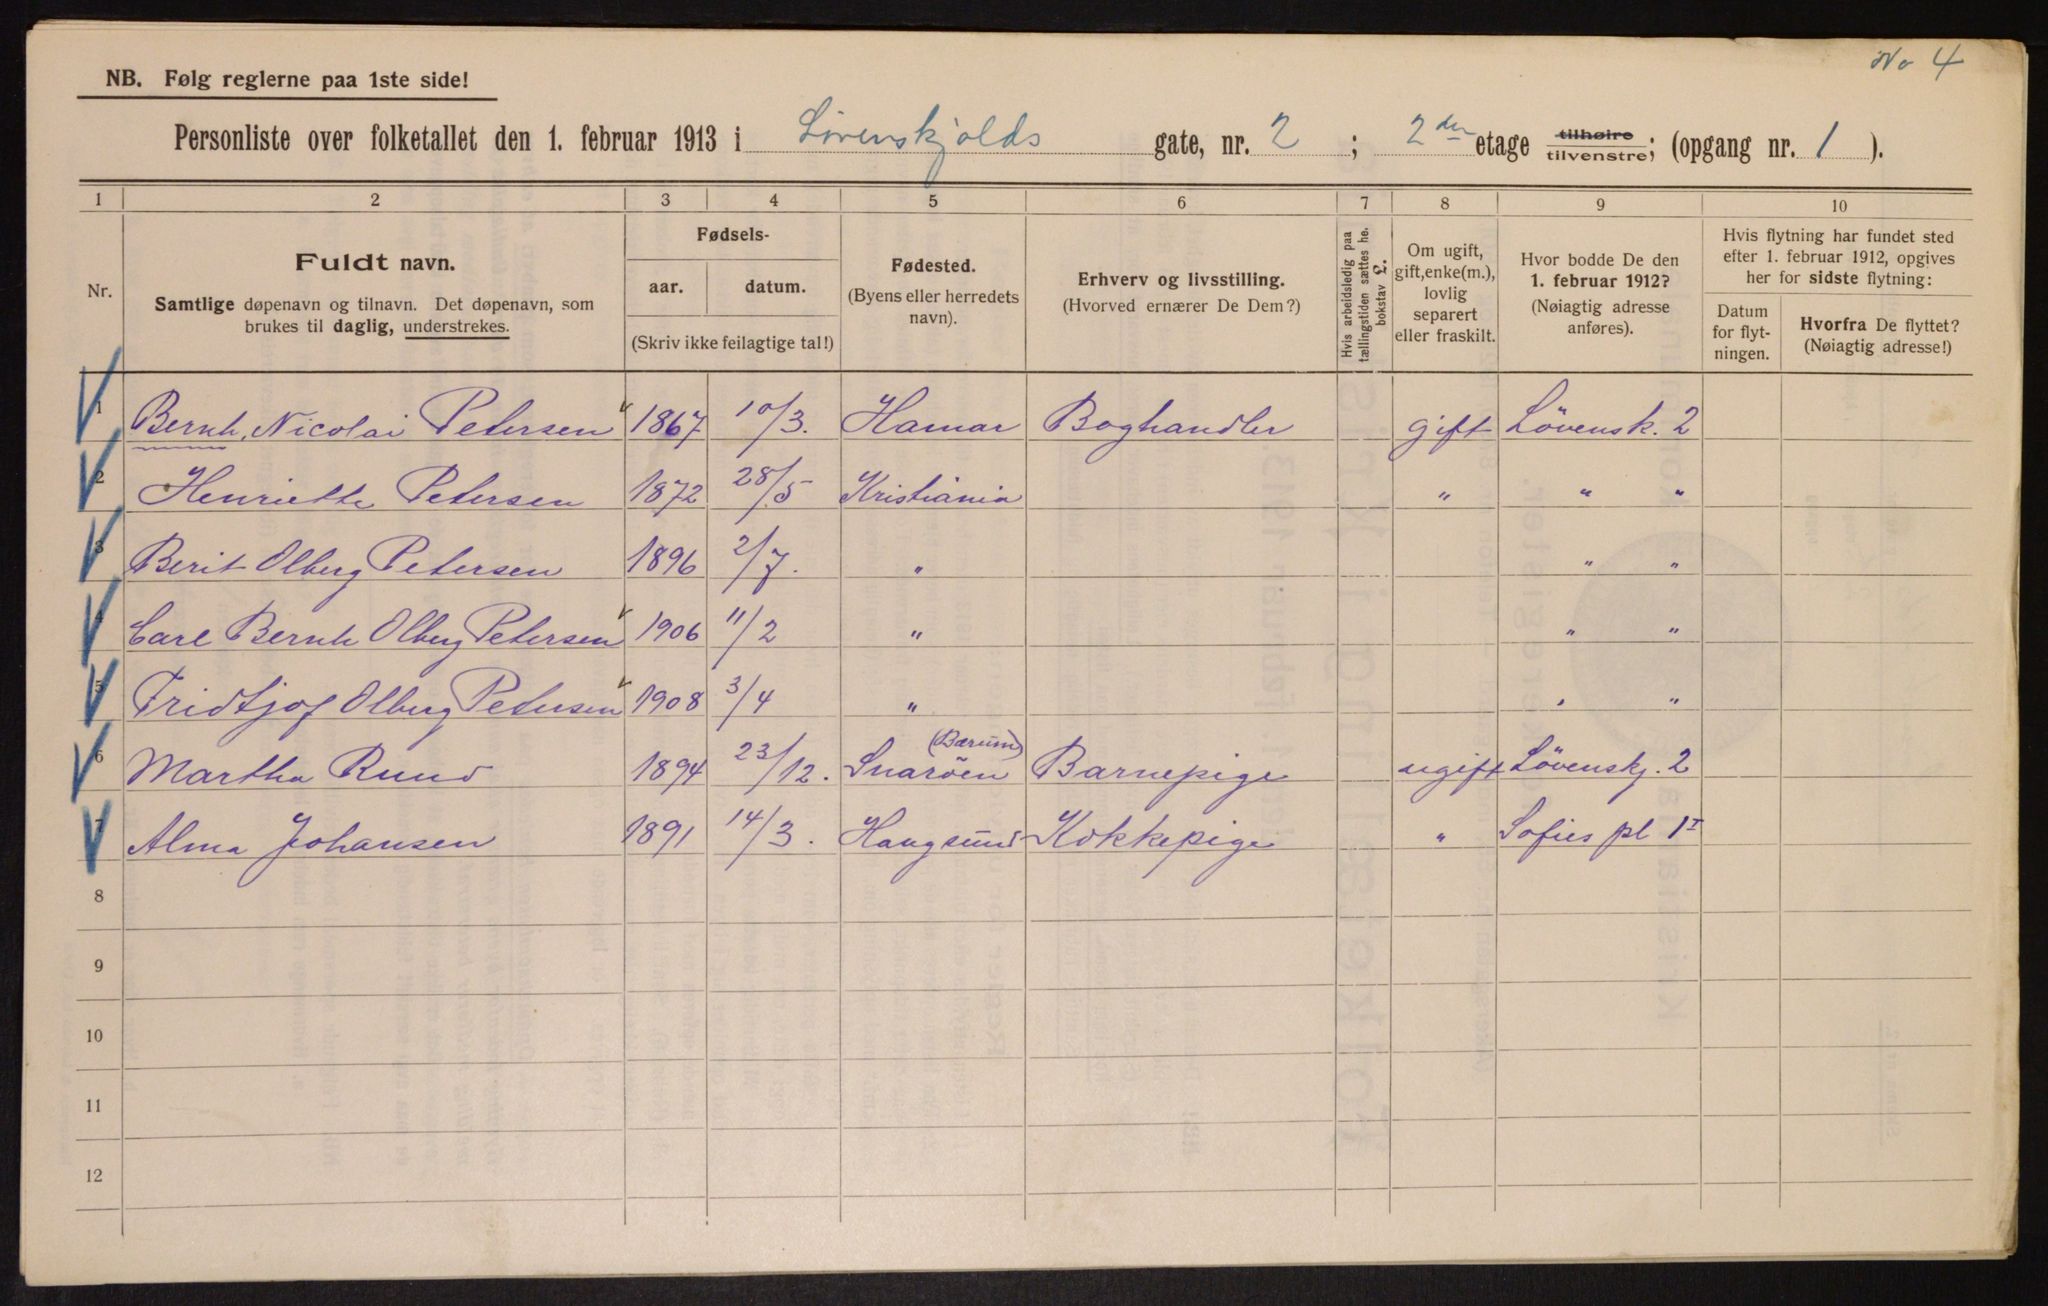 No 4
NB. Følg reglerne paa 1ste side!
Personliste over folketallet den 1. februar 1913 i Lövenskjolds gate, nr. 2 ; 2den etage tilhøire tilvenstre; (opgang nr. 1 ).
1 2 3 4 5 6 7 8 9 10
Nr.
Fuldt navn.
Samtlige døpenavn og tilnavn. Det døpenavn, som
brukes til daglig, understrekes.
Fødsels-
aar. datum.
(Skriv ikke feilagtige tal!)
Fødested.
(Byens eller herredets
navn).
Erhverv og livsstilling.
(Hvorved ernærer De Dem?)
Hvis arbeidsledig paa
tællingstiden sættes he.
bokstav L.
Om ugift,
gift, enke(m.),
lovlig
separert
eller fraskilt.
Hvor bodde De den
1. februar 1912?
(Nøiagtig adresse
anføres).
Hvis flytning har fundet sted
efter 1. februar 1912, opgives
her for sidste flytning:
Datum
for flyt-
ningen.
Hvorfra De flyttet?
(Nøiagtig adresse!)
1 Bernh. Nicolai Petersen 1867 10/3. Hamar Boghandler gift Lövensk. 2
2 Henriette Petersen 1872 28/5 Kristiania " " "
3 Berit Olberg Petersen 1896 2/7. " " "
4 Carl Bernh Olberg Petersen 1906 11/2 " " "
5 Fridtjof Olberg Petersen 1908 3/4 " " "
6 Martha Ruud 1894 23/12. Snaröen (Bærum) Barnepige ugift Lövenskj. 2
7 Alma Johansen 1891 14/3. Haugsund Kokkepige " Sofies pl 1 I
8
9
10
11
12